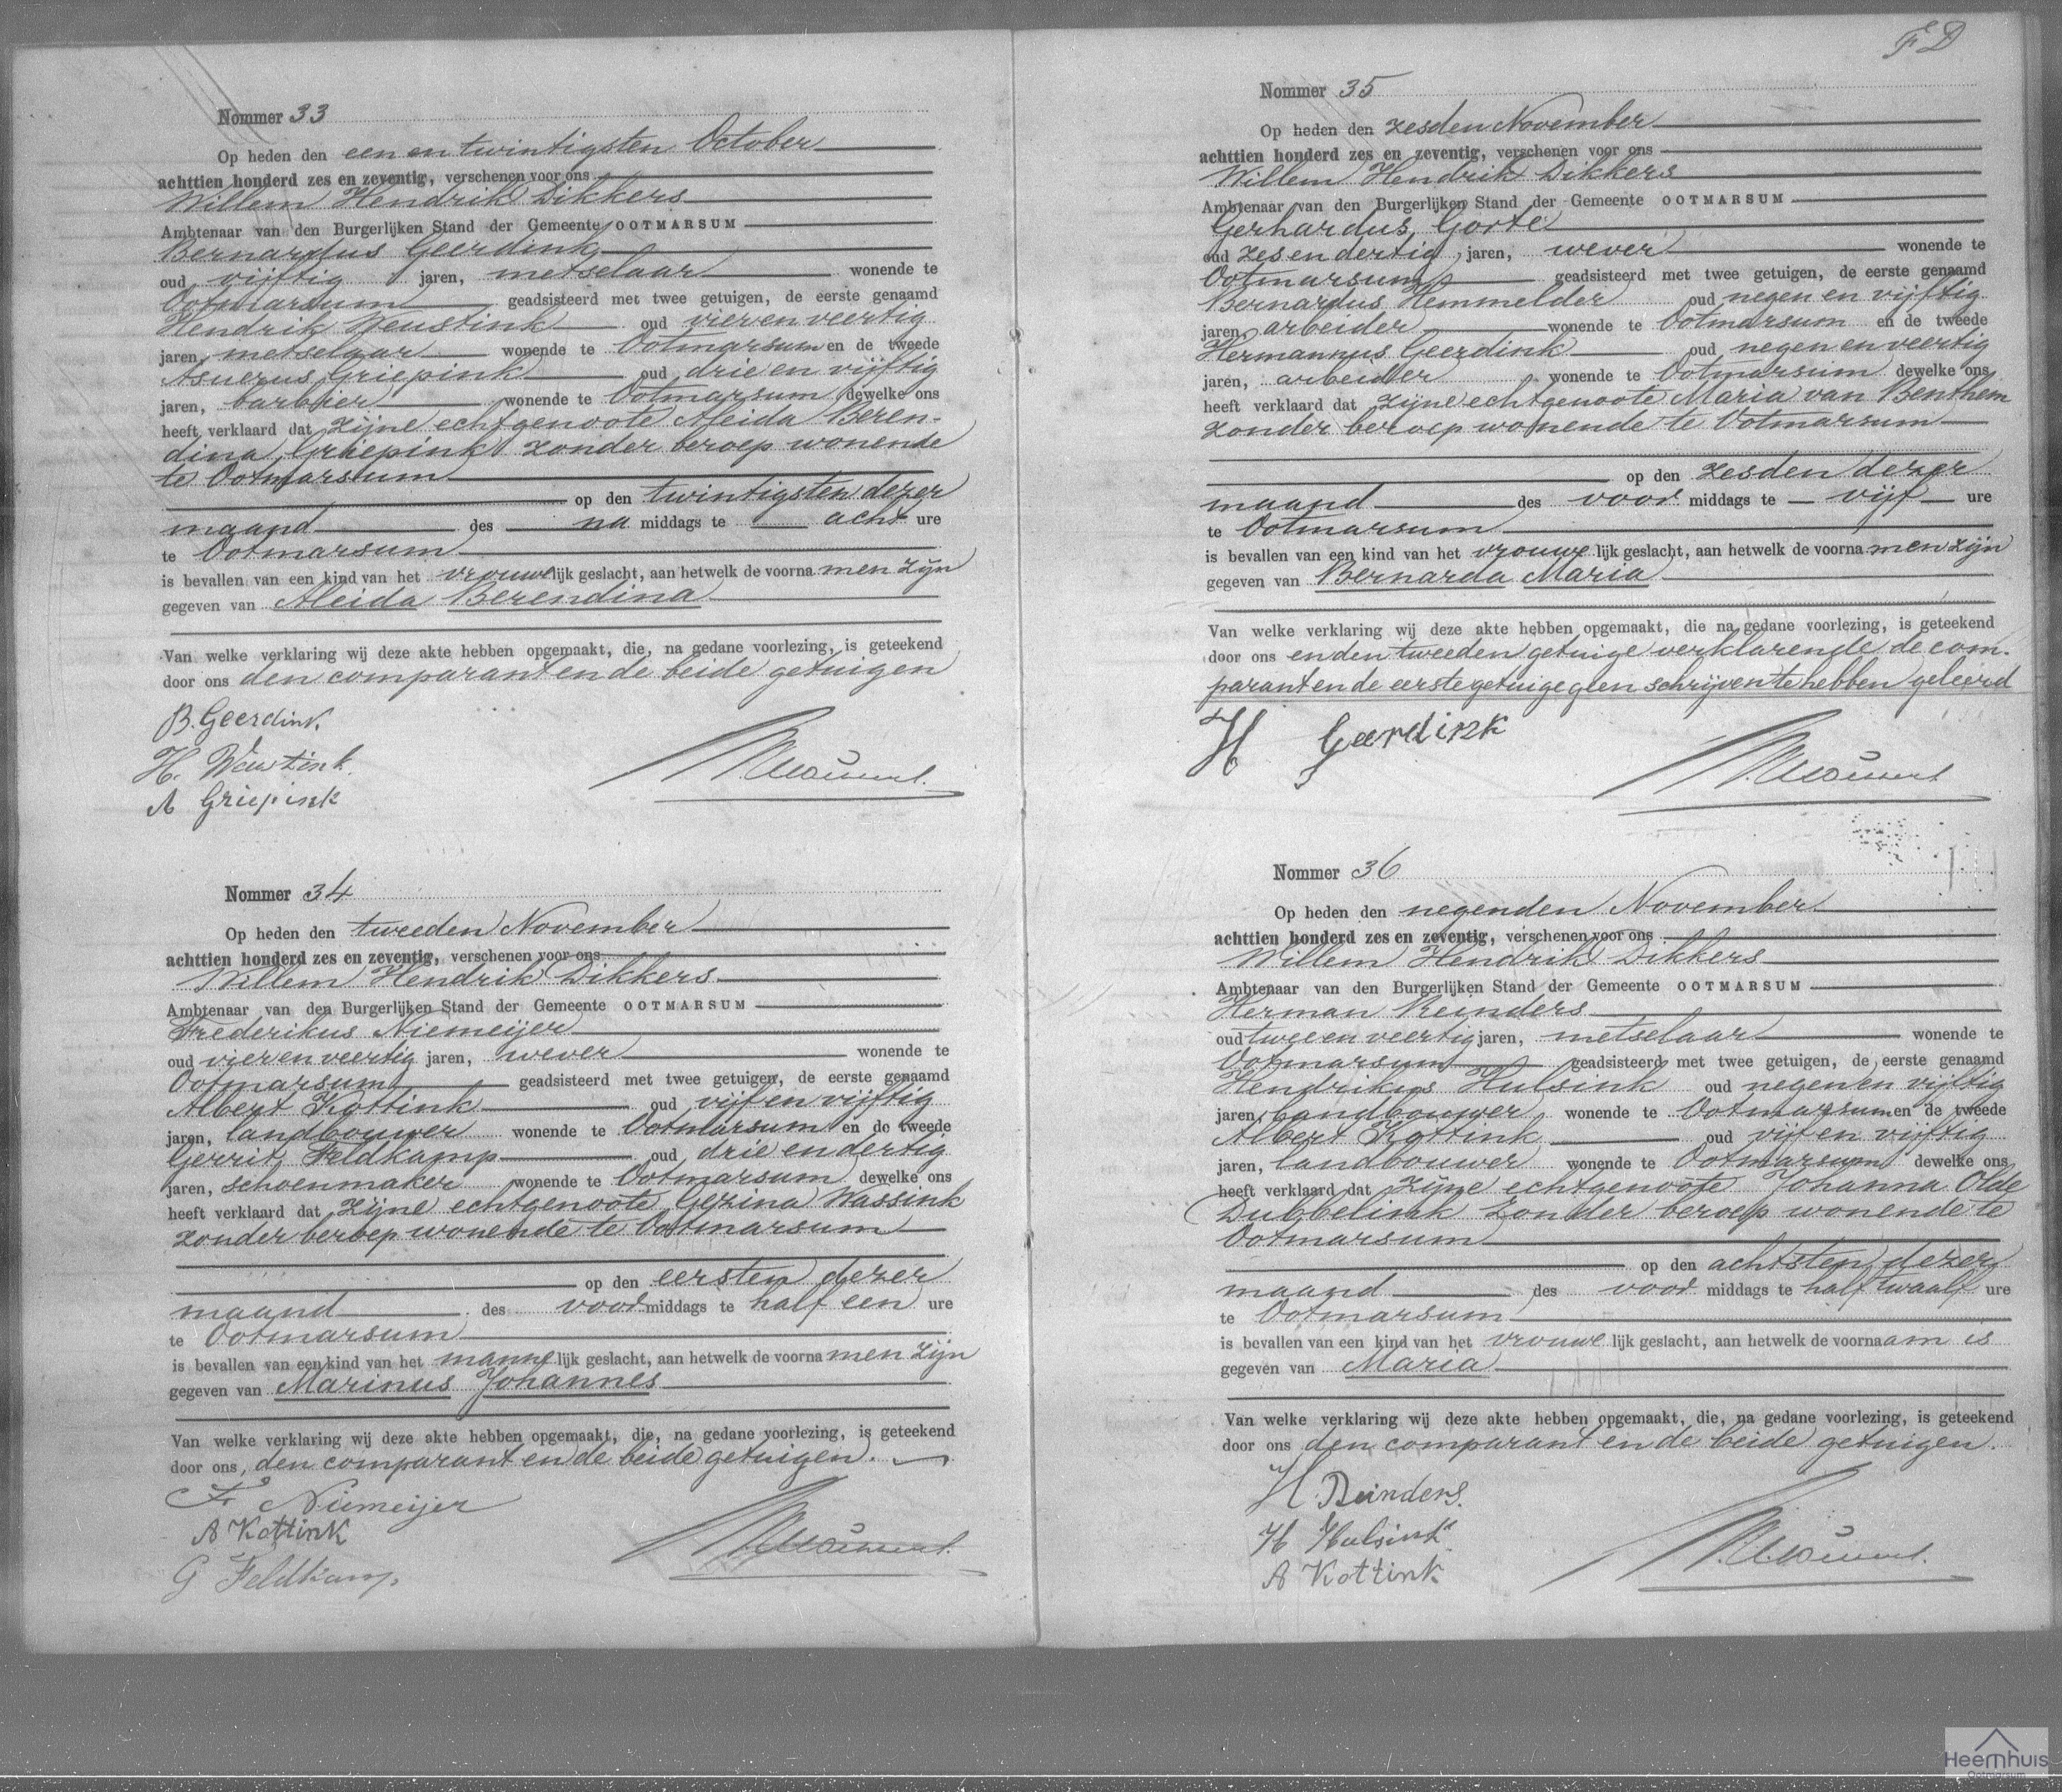 Nommer 33
Op heden den een en twintigsten October
achttien honderd zes en zeventig, verschenen voor ons
Willem Hendrik Dikkers
Ambtenaar van den Burgerlijken Stand der Gemeente OOTMARSUM
Bernardus Geerdink
oud vijftig jaren, metselaar wonende te
Ootmarsum geadsisteerd met twee getuigen, de eerste genaamd
Hendrik Weustink oud vier en veertig
jaren, metselaar wonende te Ootmarsum en de tweede
Asuerus Griepink oud drie en vijftig
jaren, barbier wonende te Ootmarsum dewelke ons
heeft verklaard dat zijne echtgenoote Aleida Beren-
dina Griepink zonder beroep wonende
te Ootmarsum
op den twintigsten dezer
maand des na middags te acht ure
te Ootmarsum
is bevallen van een kind van het vrouwelijk geslacht, aan hetwelk de voornamen zijn
gegeven van Aleida Berendina
Van welke verklaring wij deze akte hebben opgemaakt, die, na gedane voorlezing, is geteekend
door ons den comparant en de beide getuigen
B. Geerdink.
H. Weustink.
A Griepink
Nommer 34
Op heden den tweeden November
achttien honderd zes en zeventig, verschenen voor ons
Willem Hendrik Dikkers
Ambtenaar van den Burgerlijken Stand der Gemeente OOTMARSUM
Frederikus Niemeijer
oud vier en veertig jaren, wever wonende te
Ootmarsum geadsisteerd met twee getuigen, de eerste genaamd
Albert Kottink oud vijf en vijftig
jaren, landbouwer wonende te Ootmarsum en de tweede
Gerrit Feldkamp oud drie en dertig
jaren, schoenmaker wonende te Ootmarsum dewelke ons
heeft verklaard dat zijne echtgenoote Gezina Wassink
zonder beroep wonende te Ootmarsum
op den eersten dezer
maand des voormiddags te half een ure
te Ootmarsum
is bevallen van een kind van het mannelijk geslacht, aan hetwelk de voornamen zijn
gegeven van Marinus Johannes
Van welke verklaring wij deze akte hebben opgemaakt, die, na gedane voorlezing, is geteekend
door ons, den comparant en de beide getuigen.
F. Niemeijer
A Kottink
G Feldkamp.
F D
Nommer 35
Op heden den zesden November
achttien honderd zes en zeventig, verschenen voor ons
Willem Hendrik Dikkers
Ambtenaar van den Burgerlijken Stand der Gemeente OOTMARSUM
Gerhardus Gorte
oud zes en dertig jaren, wever wonende te
Ootmarsum geadsisteerd met twee getuigen, de eerste genaamd
Bernardus Hemmelder oud negen en vijftig
jaren, arbeider wonende te Ootmarsum en de tweede
Hermannus Geerdink oud negen en veertig
jaren, arbeider wonende te Ootmarsum dewelke ons
heeft verklaard dat zijne echtgenoote Maria van Benthem
zonder beroep wonende te Ootmarsum
op den zesden dezer
maand des voor middags te vijf ure
te Ootmarsum
is bevallen van een kind van het vrouwelijk geslacht, aan hetwelk de voornamen zijn
gegeven van Bernarda Maria
Van welke verklaring wij deze akte hebben opgemaakt, die, na gedane voorlezing, is geteekend
door ons en den tweeden getuige verklarende de com-
parant en de eerste getuige geen schrijven te hebben geleerd
H Geerdink
Nommer 36
Op heden den negenden November
achttien honderd zes en zeventig, verschenen voor ons
Willem Hendrik Dikkers
Ambtenaar van den Burgerlijken Stand der Gemeente OOTMARSUM
Herman Reinders
oud twee en veertig jaren, metselaar wonende te
Ootmarsum geadsisteerd met twee getuigen, de eerste genaamd
Hendrikus Hulsink oud negen en vijftig
jaren, landbouwer wonende te Ootmarsum en de tweede
Albert Kottink oud vijf en vijftig
jaren, landbouwer wonende te Ootmarsum dewelke ons
heeft verklaard dat zijne echtgenoote Johanna Olde
Dubbelink zonder beroep wonende te
Ootmarsum
op den achtsten dezer
maand des voor middags te half twaalf ure
te Ootmarsum
is bevallen van een kind van het vrouwelijk geslacht, aan hetwelk de voornaam is
gegeven van Maria
Van welke verklaring wij deze akte hebben opgemaakt, die, na gedane voorlezing, is geteekend
door ons den comparant en de beide getuigen.
H. Reinders.
H Hulsink
A Kottink
Heemhuis
Ootmarsum